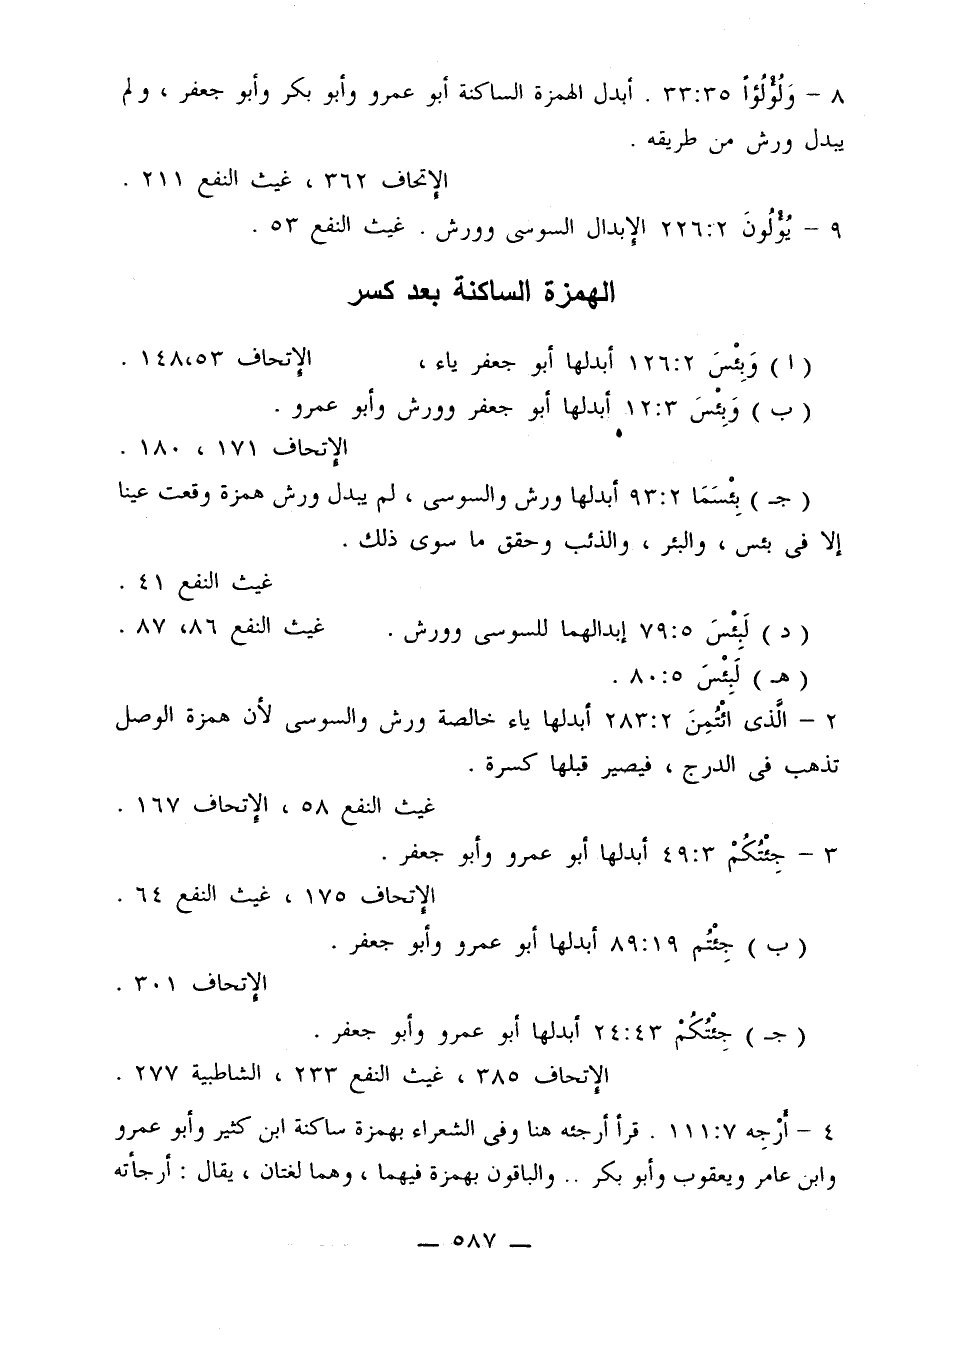 ٨ – وَلُؤْلُؤاً ٣٣:٣٥ . أبدل الهمزة الساكنة أبو عمرو وأبو بكر وأبو جعفر ، ولم
يبدل ورش من طريقه .
الإتحاف ٣٦٢ ، غيث النفع ٢١١ .
٩ – يُؤْلُونَ ٢٢٦:٢ الإبدال السوسى وورش . غيث النفع ٥٣ .
الهمزة الساكنة بعد كسر
( ا ) وَبِئْسَ ١٢٦:٢ أبدلها أبو جعفر ياء ، الإتحاف ١٤٨،٥٣ .
( ب ) وَبِئْسَ ١٢:٣ أبدلها أبو جعفر وورش وأبو عمرو .
الإتحاف ١٧١ ، ١٨٠ .
( جـ ) بِئْسَمَا ٩٣:٢ أبدلها ورش والسوسى ، لم يبدل ورش همزة وقعت عينا
إلا فى بئس ، والبئر ، والذئب وحقق ما سوى ذلك .
غيث النفع ٤١ .
( د ) لَبِئْسَ ٧٩:٥ إبدالهما للسوسى وورش . غيث النفع ٨٦، ٨٧ .
( هـ ) لَبِئْسَ ٨٠:٥ .
٢ – الَّذى ائْتُمِنَ ٢٨٣:٢ أبدلها ياء خالصة ورش والسوسى لأن همزة الوصل
تذهب فى الدرج ، فيصير قبلها كسرة .
غيث النفع ٥٨ ، الإتحاف ١٦٧ .
٣ – جِئْتُكُمْ ٤٩:٣ أبدلها أبو عمرو وأبو جعفر .
الإتحاف ١٧٥ ، غيث النفع ٦٤ .
( ب ) جِئْتُم ٨٩:١٩ أبدلها أبو عمرو وأبو جعفر .
الإتحاف ٣٠١ .
( جـ ) جِئْتُكُمْ ٢٤:٤٣ أبدلها أبو عمرو وأبو جعفر .
الإتحاف ٣٨٥ ، غيث النفع ٢٣٣ ، الشاطبية ٢٧٧ .
٤ – أَرْجِه ١١١:٧ . قرأ أرجئه هنا وفى الشعراء بهمزة ساكنة ابن كثير وأبو عمرو
وابن عامر ويعقوب وأبو بكر .. والباقون بهمزة فيهما ، وهما لغتان ، يقال : أرجأته
— ٥٨٧ —